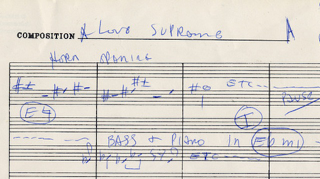 COMPOSITION A Love Supreme A
HORN
ETC
PAUSE
E4 I
BASS & PIANO In Eb mi
ETC